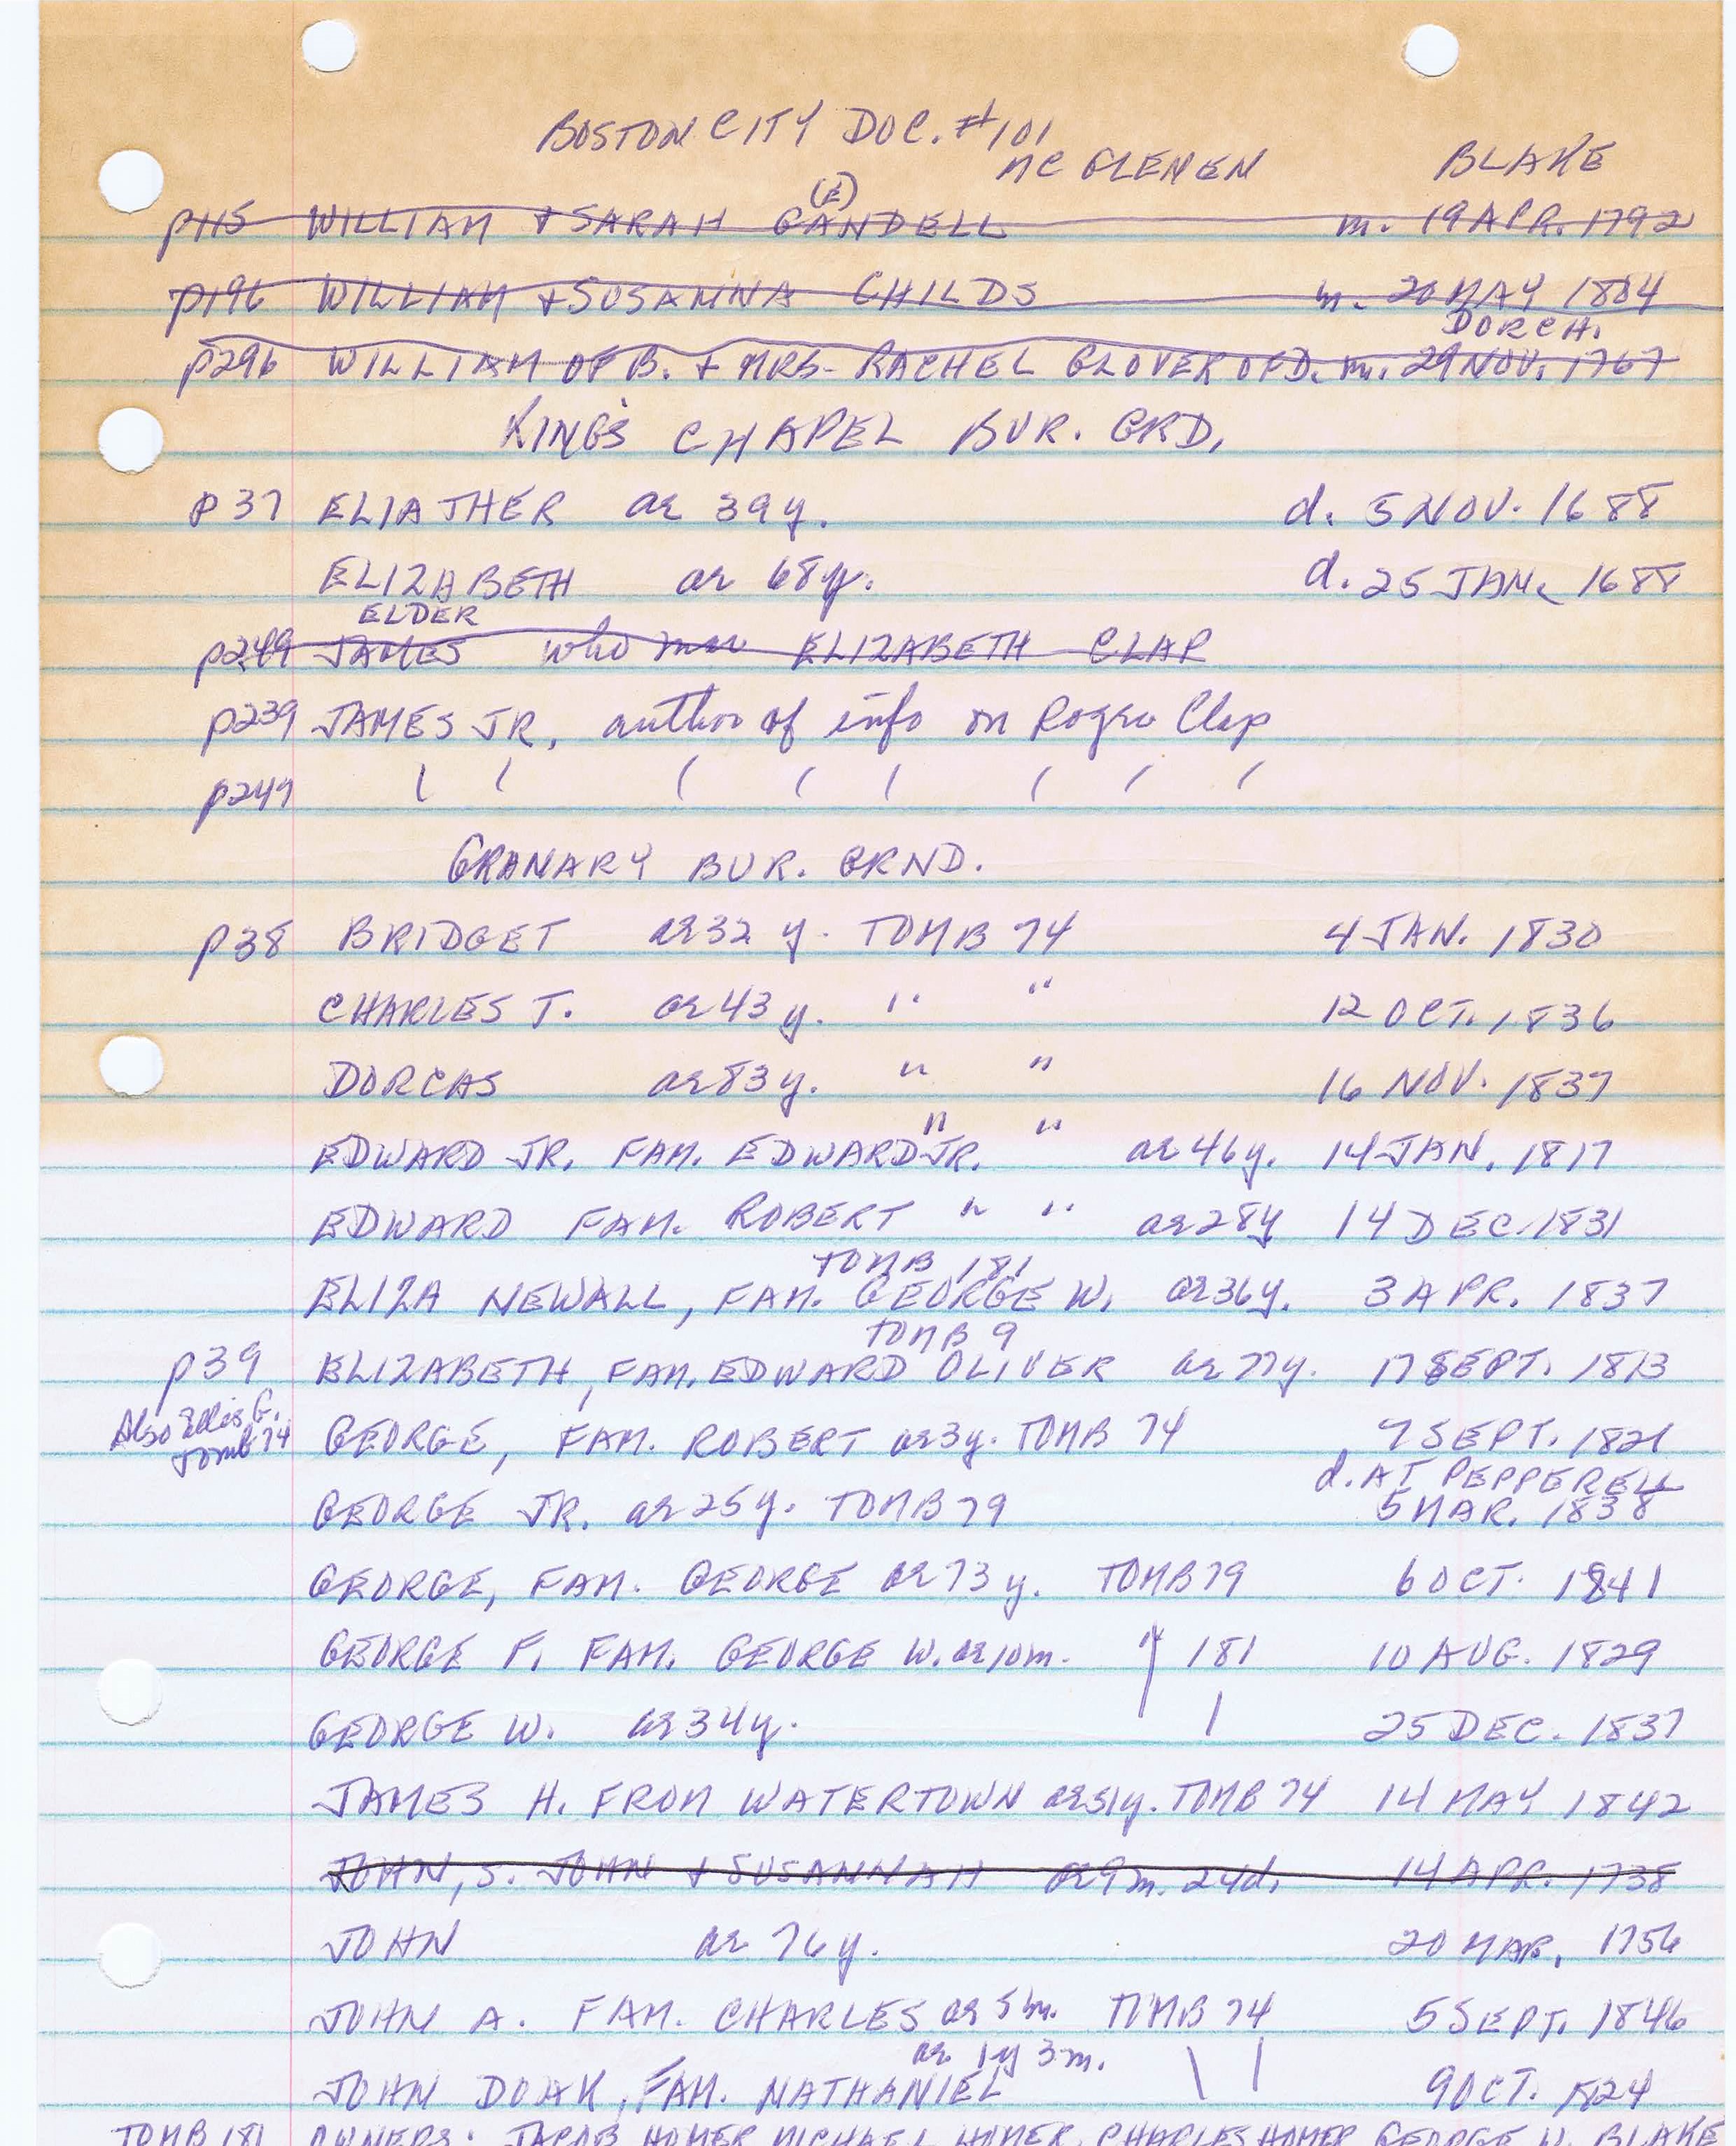 BOSTON CITY DOC. #101
MC GLENEN BLAKE
(E)
p115 WILLIAM & SARAH GANDELL m. 19 APR. 1792
p196 WILLIAM & SUSANNA CHILDS m. 20 MAY 1804
DORCH.
p296 WILLIAM OF B. & MRS. RACHEL GLOVER OF D. m. 29 NOV. 1767
KING'S CHAPEL BUR. GRD.
p 37 ELIATHER ae 39 y. d. 5 NOV. 1688
ELIZABETH ae 68 y. d. 25 JAN. 1688
ELDER
p249 JAMES who mar ELIZABETH CLAP
p239 JAMES JR, author of info on Roger Clap
p249 \ ( ( ( ( ( ( (
GRANARY BUR. GRND.
p38 BRIDGET ae 32 y. TOMB 74 4 JAN. 1830
CHARLES T. ae 43 y. " " 12 OCT. 1836
DORCAS ae 83 y. " " 16 NOV. 1837
" "
EDWARD JR. FAM. EDWARD JR. ae 46 y. 14 JAN. 1817
EDWARD FAM. ROBERT " " ae 28 y 14 DEC. 1831
TOMB 181
ELIZA NEWALL, FAM. GEORGE W. ae 36 y. 3 APR. 1837
TOMB 9
p39 ELIZABETH, FAM. EDWARD OLIVER ae 77 y. 17 SEPT. 1813
Also Ellis G.
Tomb 74
GEORGE, FAM. ROBERT ae 3 y. TOMB 74 7 SEPT. 1821
d. AT PEPPERELL
GEORGE JR. ae 25 y. TOMB 79 5 MAR. 1838
GEORGE, FAM. GEORGE ae 73 y. TOMB 79 6 OCT. 1841
GEORGE F. FAM. GEORGE W. ae 10 m. " 181 10 AUG. 1829
GEORGE W. ae 34 y. | \ 25 DEC. 1837
JAMES H. FROM WATERTOWN ae 51 y. TOMB 74 14 MAY 1842
JOHN, S. JOHN & SUSANNAH ae 9 m. 24 d. 14 APR. 1738
JOHN ae 76 y. 20 MAR. 1756
JOHN A. FAM. CHARLES ae 5 m. TOMB 74 5 SEPT. 1846
ae 1 y 3 m.
JOHN DOAK, FAM. NATHANIEL \ | 9 OCT. 1824
TOMB 181 OWNERS: JACOB HOMER, MICHAEL HOMER, CHARLES HOMER GEORGE W. BLAKE